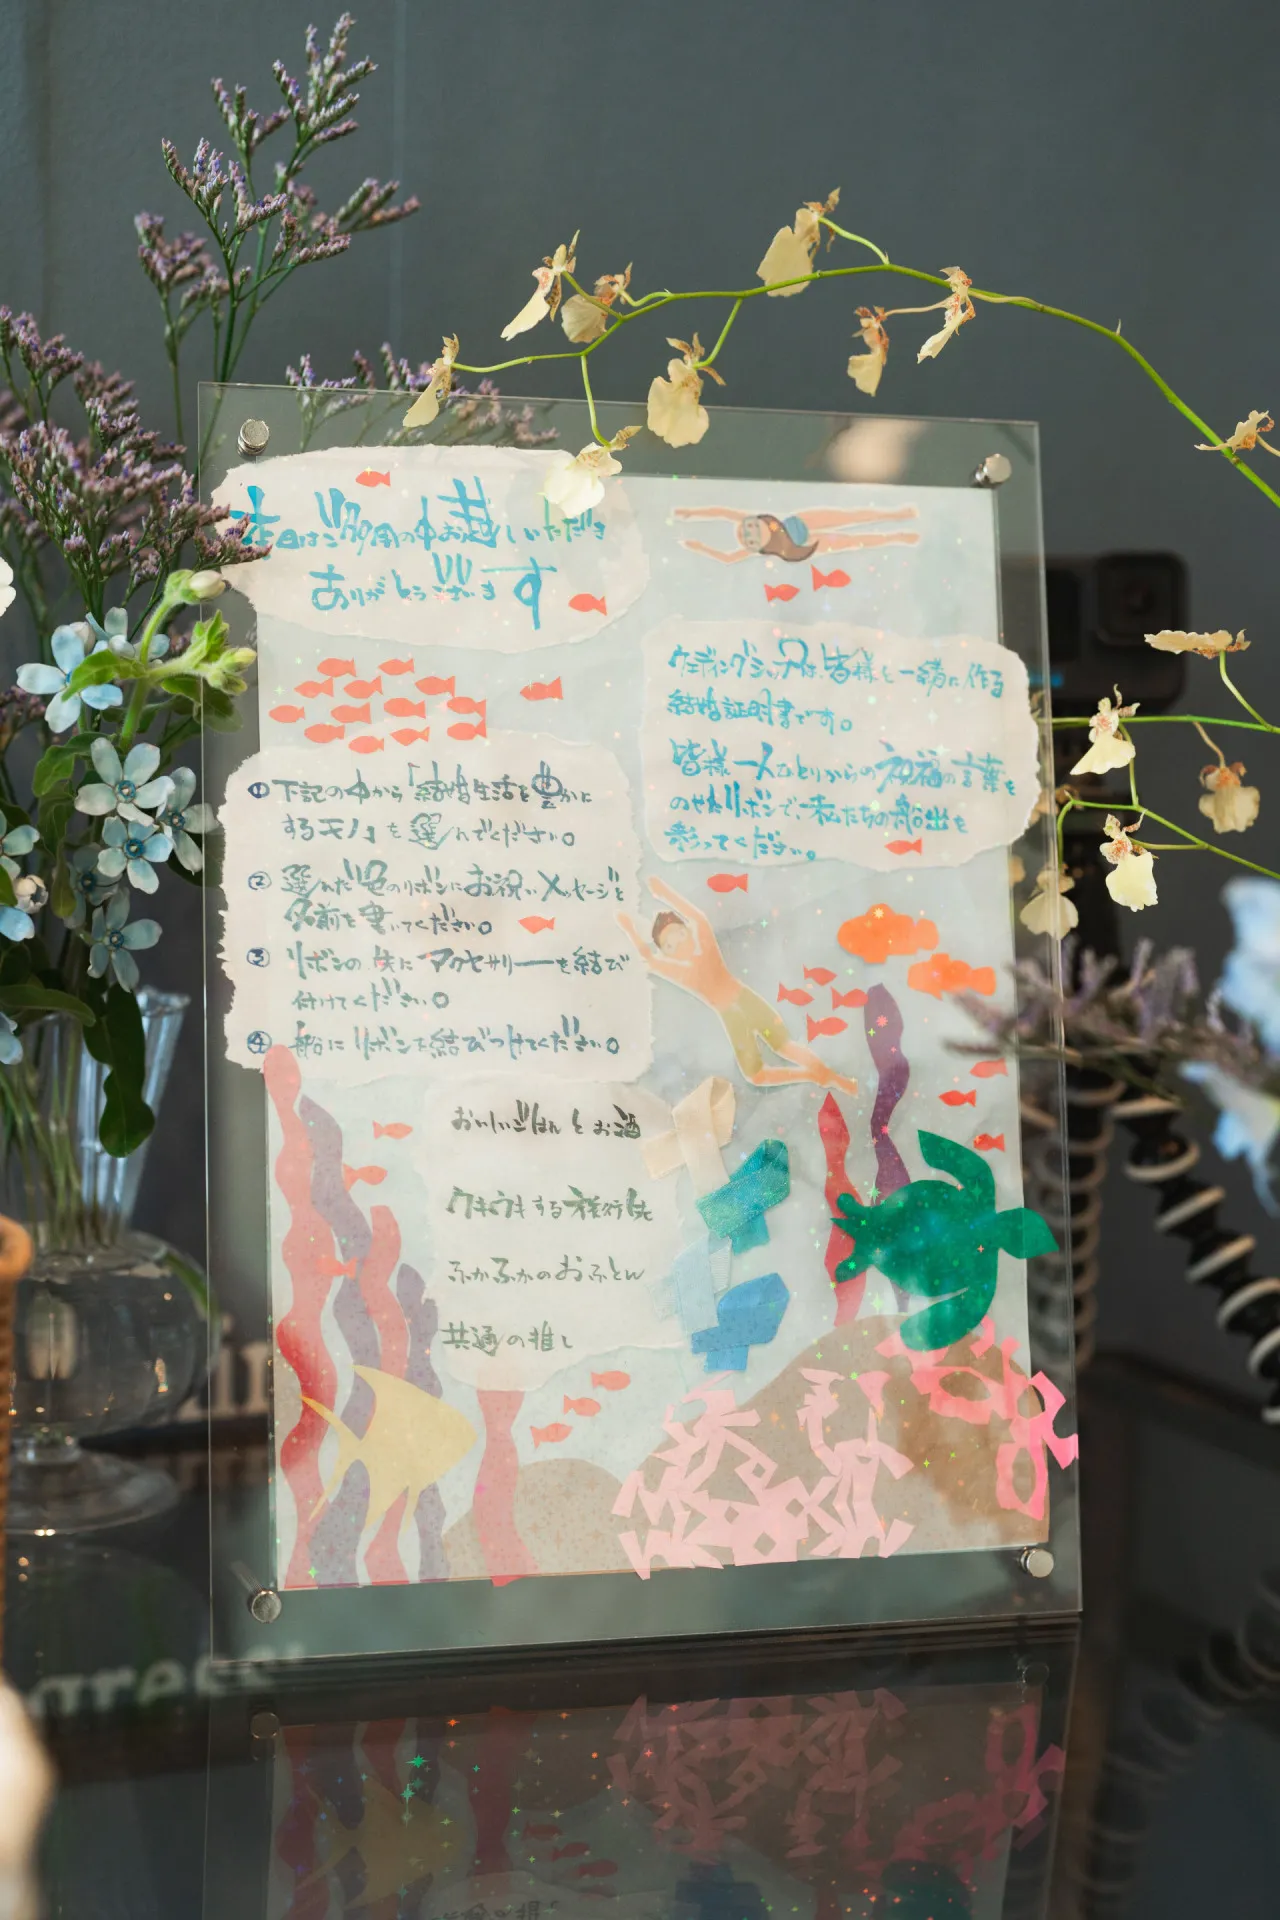 本日はご多用の中お越しいただき
ありがとうございます
ウェディングシップは、皆様と一緒に作る
結婚証明書です。
皆様一人ひとりからの祝福の言葉を
のせたリボンで、私たちの船出を
彩ってください。
① 下記の中から「結婚生活を豊かに
するモノ」を選んでください。
② 選んだ色のリボンにお祝いメッセージと
名前を書いてください。
③ リボンの先にアクセサリーを結び
付けてください。
④ 船にリボンを結びつけてください。
おいしいごはんとお酒
ウキウキする旅行先
ふかふかのおふとん
共通の推し